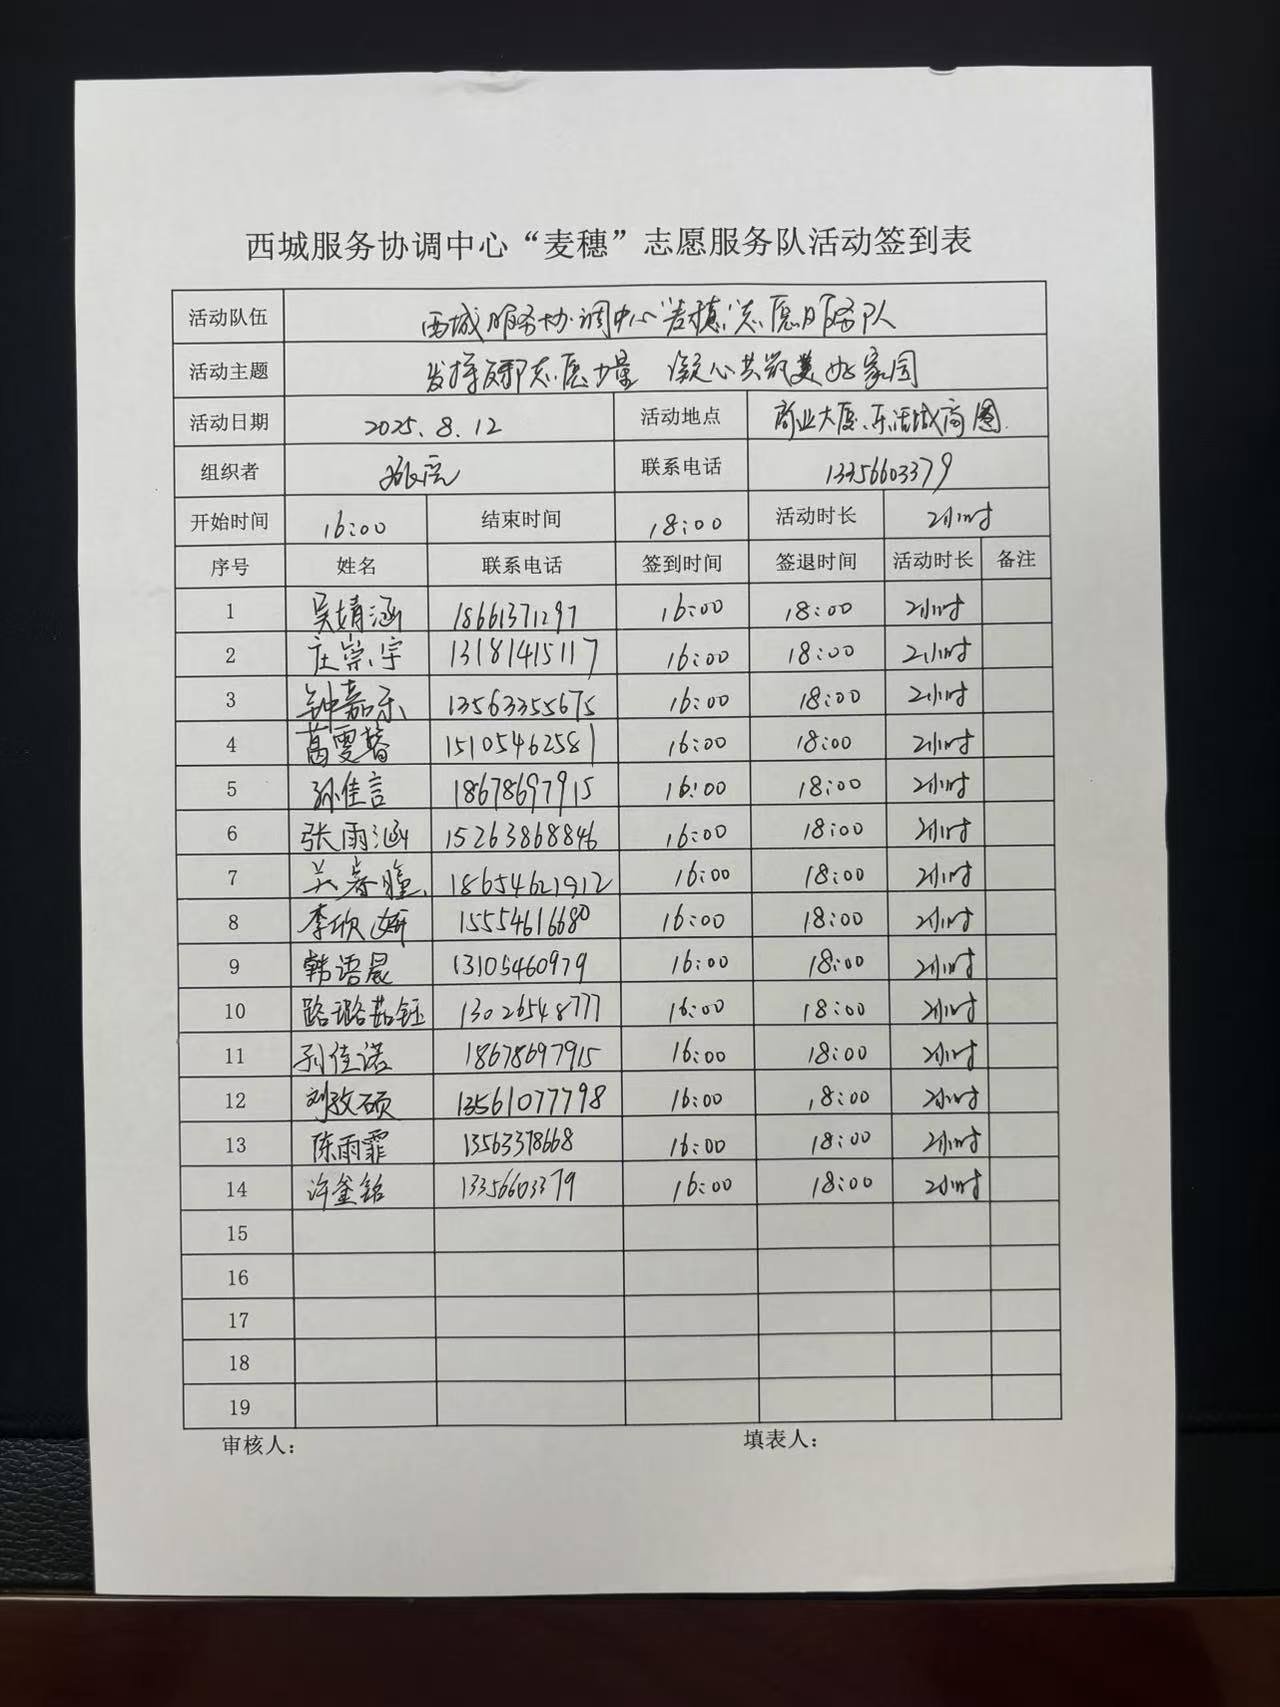 西城服务协调中心“麦穗”志愿服务队活动签到表
活动队伍 西城服务协调中心“麦穗”志愿服务队
活动主题 发挥志愿力量 凝心共筑美好家园
活动日期 2025.8.12 活动地点 商业大厦、乐活城商圈
组织者 联系电话 13356603379
开始时间 16:00 结束时间 18:00 活动时长 2小时
序号 姓名 联系电话 签到时间 签退时间 活动时长 备注
1 吴婧涵 18661371297 16:00 18:00 2小时
2 庄崇宇 13181415117 16:00 18:00 2小时
3 钟嘉乐 13563355675 16:00 18:00 2小时
4 葛雯馨 15105462581 16:00 18:00 2小时
5 孙佳言 18678697915 16:00 18:00 2小时
6 张雨涵 15263868846 16:00 18:00 2小时
7 18654621912 16:00 18:00 2小时
8 李欣妍 15554616680 16:00 18:00 2小时
9 韩语晨 13105460979 16:00 18:00 2小时
10 路璐茹钰 13026548777 16:00 18:00 2小时
11 孙佳诺 18678697915 16:00 18:00 2小时
12 刘孜硕 13561077798 16:00 18:00 2小时
13 陈雨霏 13563378668 16:00 18:00 2小时
14 许釜铭 13356603379 16:00 18:00 2小时
15
16
17
18
19
审核人： 填表人：